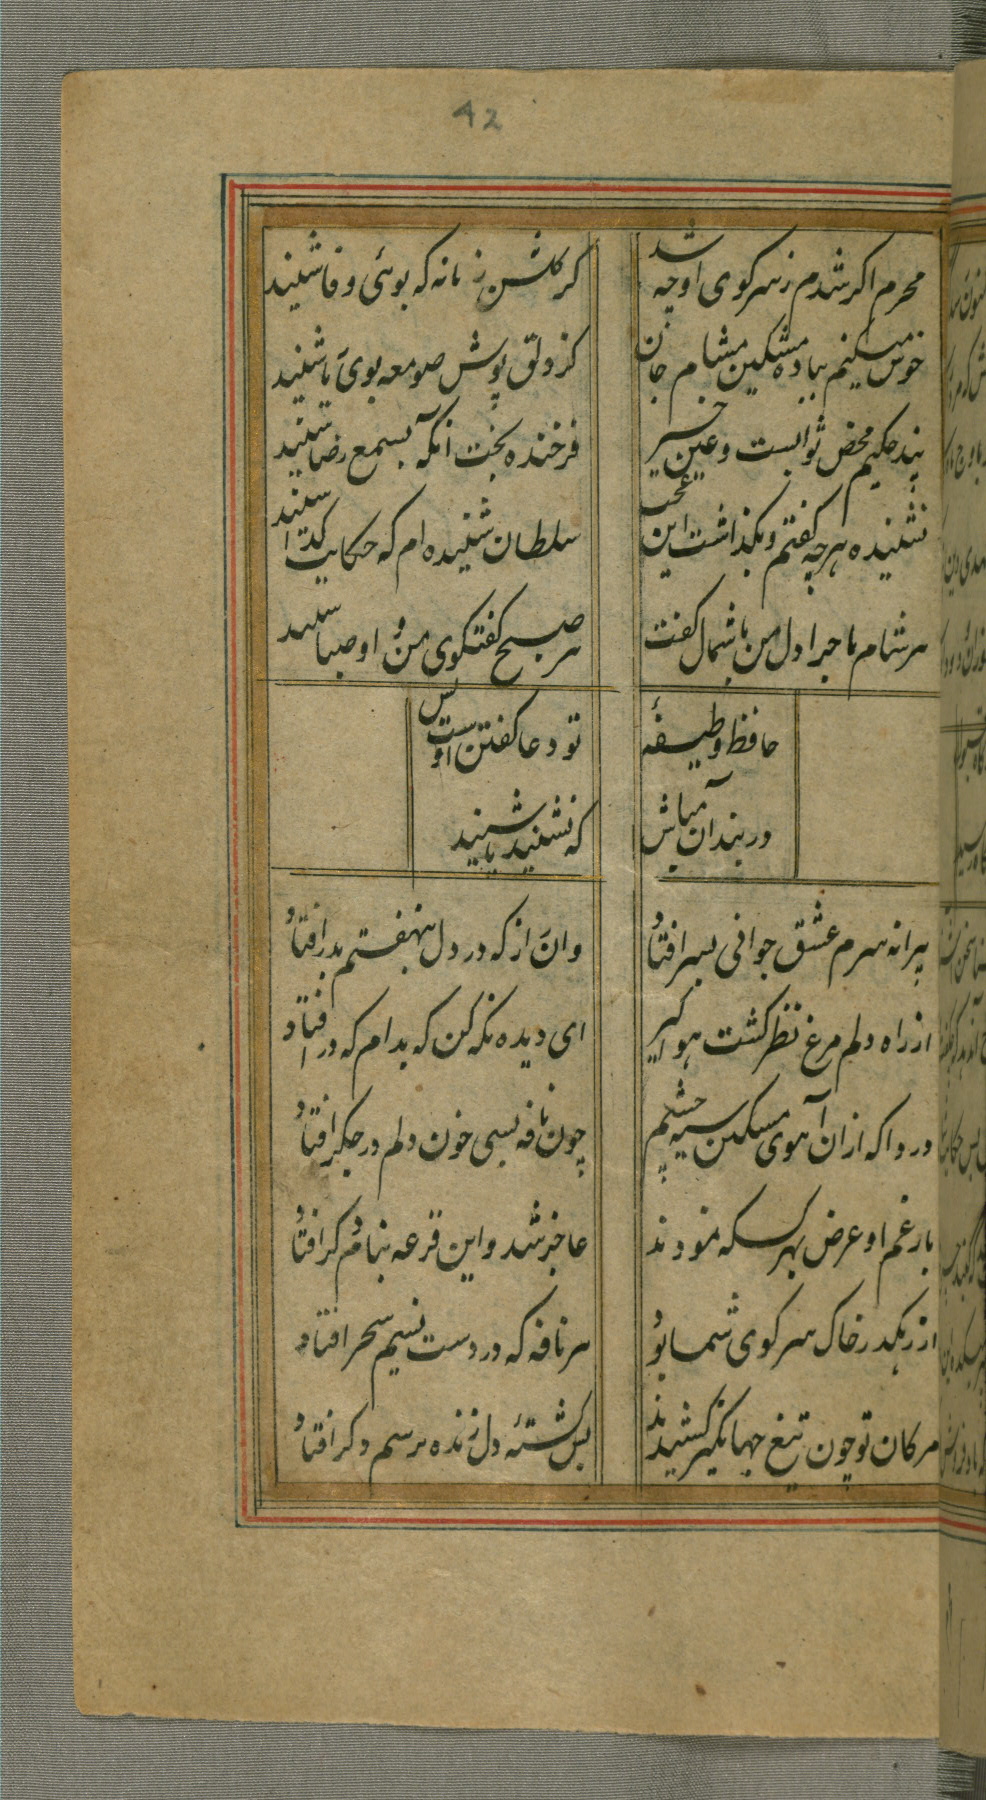 42
محرم اگر شدم ز سر کوی او چه شد
کز گلشن زمانه که بوی وفا شنید
خوش میکنم بباده مشکین مشام جان
کز دلق پوش صومعه بوی ریا شنید
پند حکیم محض ثوابست و عین خیر
فرخنده بخت آنکه بسمع رضا شنید
نشنیده هرچه گفتم و بگذاشت این عجب
سلطان شنیده ام که حکایت گدا شنید
هر شام ماجرا دل من با شمال گفت
هر صبح گفتگوی من و او صبا شنید
حافظ وظیفهٔ تو دعا گفتن است و بس
در بند آن مباش که نشنید یا شنید
پیرانه سرم عشق جوانی بسر افتاد
وان راز که در دل بنهفتم بدر افتاد
از راه دلم مرغ نظر گشت هوا گیر
ای دیده نگه کن که بدام که در افتاد
دردا که از آن آهوی مسکین سیه چشم
چون نافه بسی خون دلم در جگر افتاد
بار غم او عرض بهر کس که نمودند
عاجز شد و این قرعه بنام گر افتاد
از رهگذر خاک سر کوی شما بود
هر نافه که در دست نسیم سحر افتاد
مژگان تو چون تیغ جهانگیر کشیدند
بس کشتهٔ دل زنده بر سم دگر افتاد